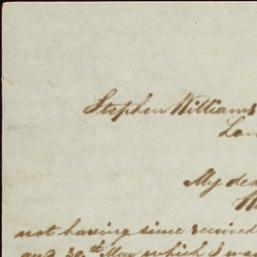 Stephen Williams
My dea
not having since received
30th May which I